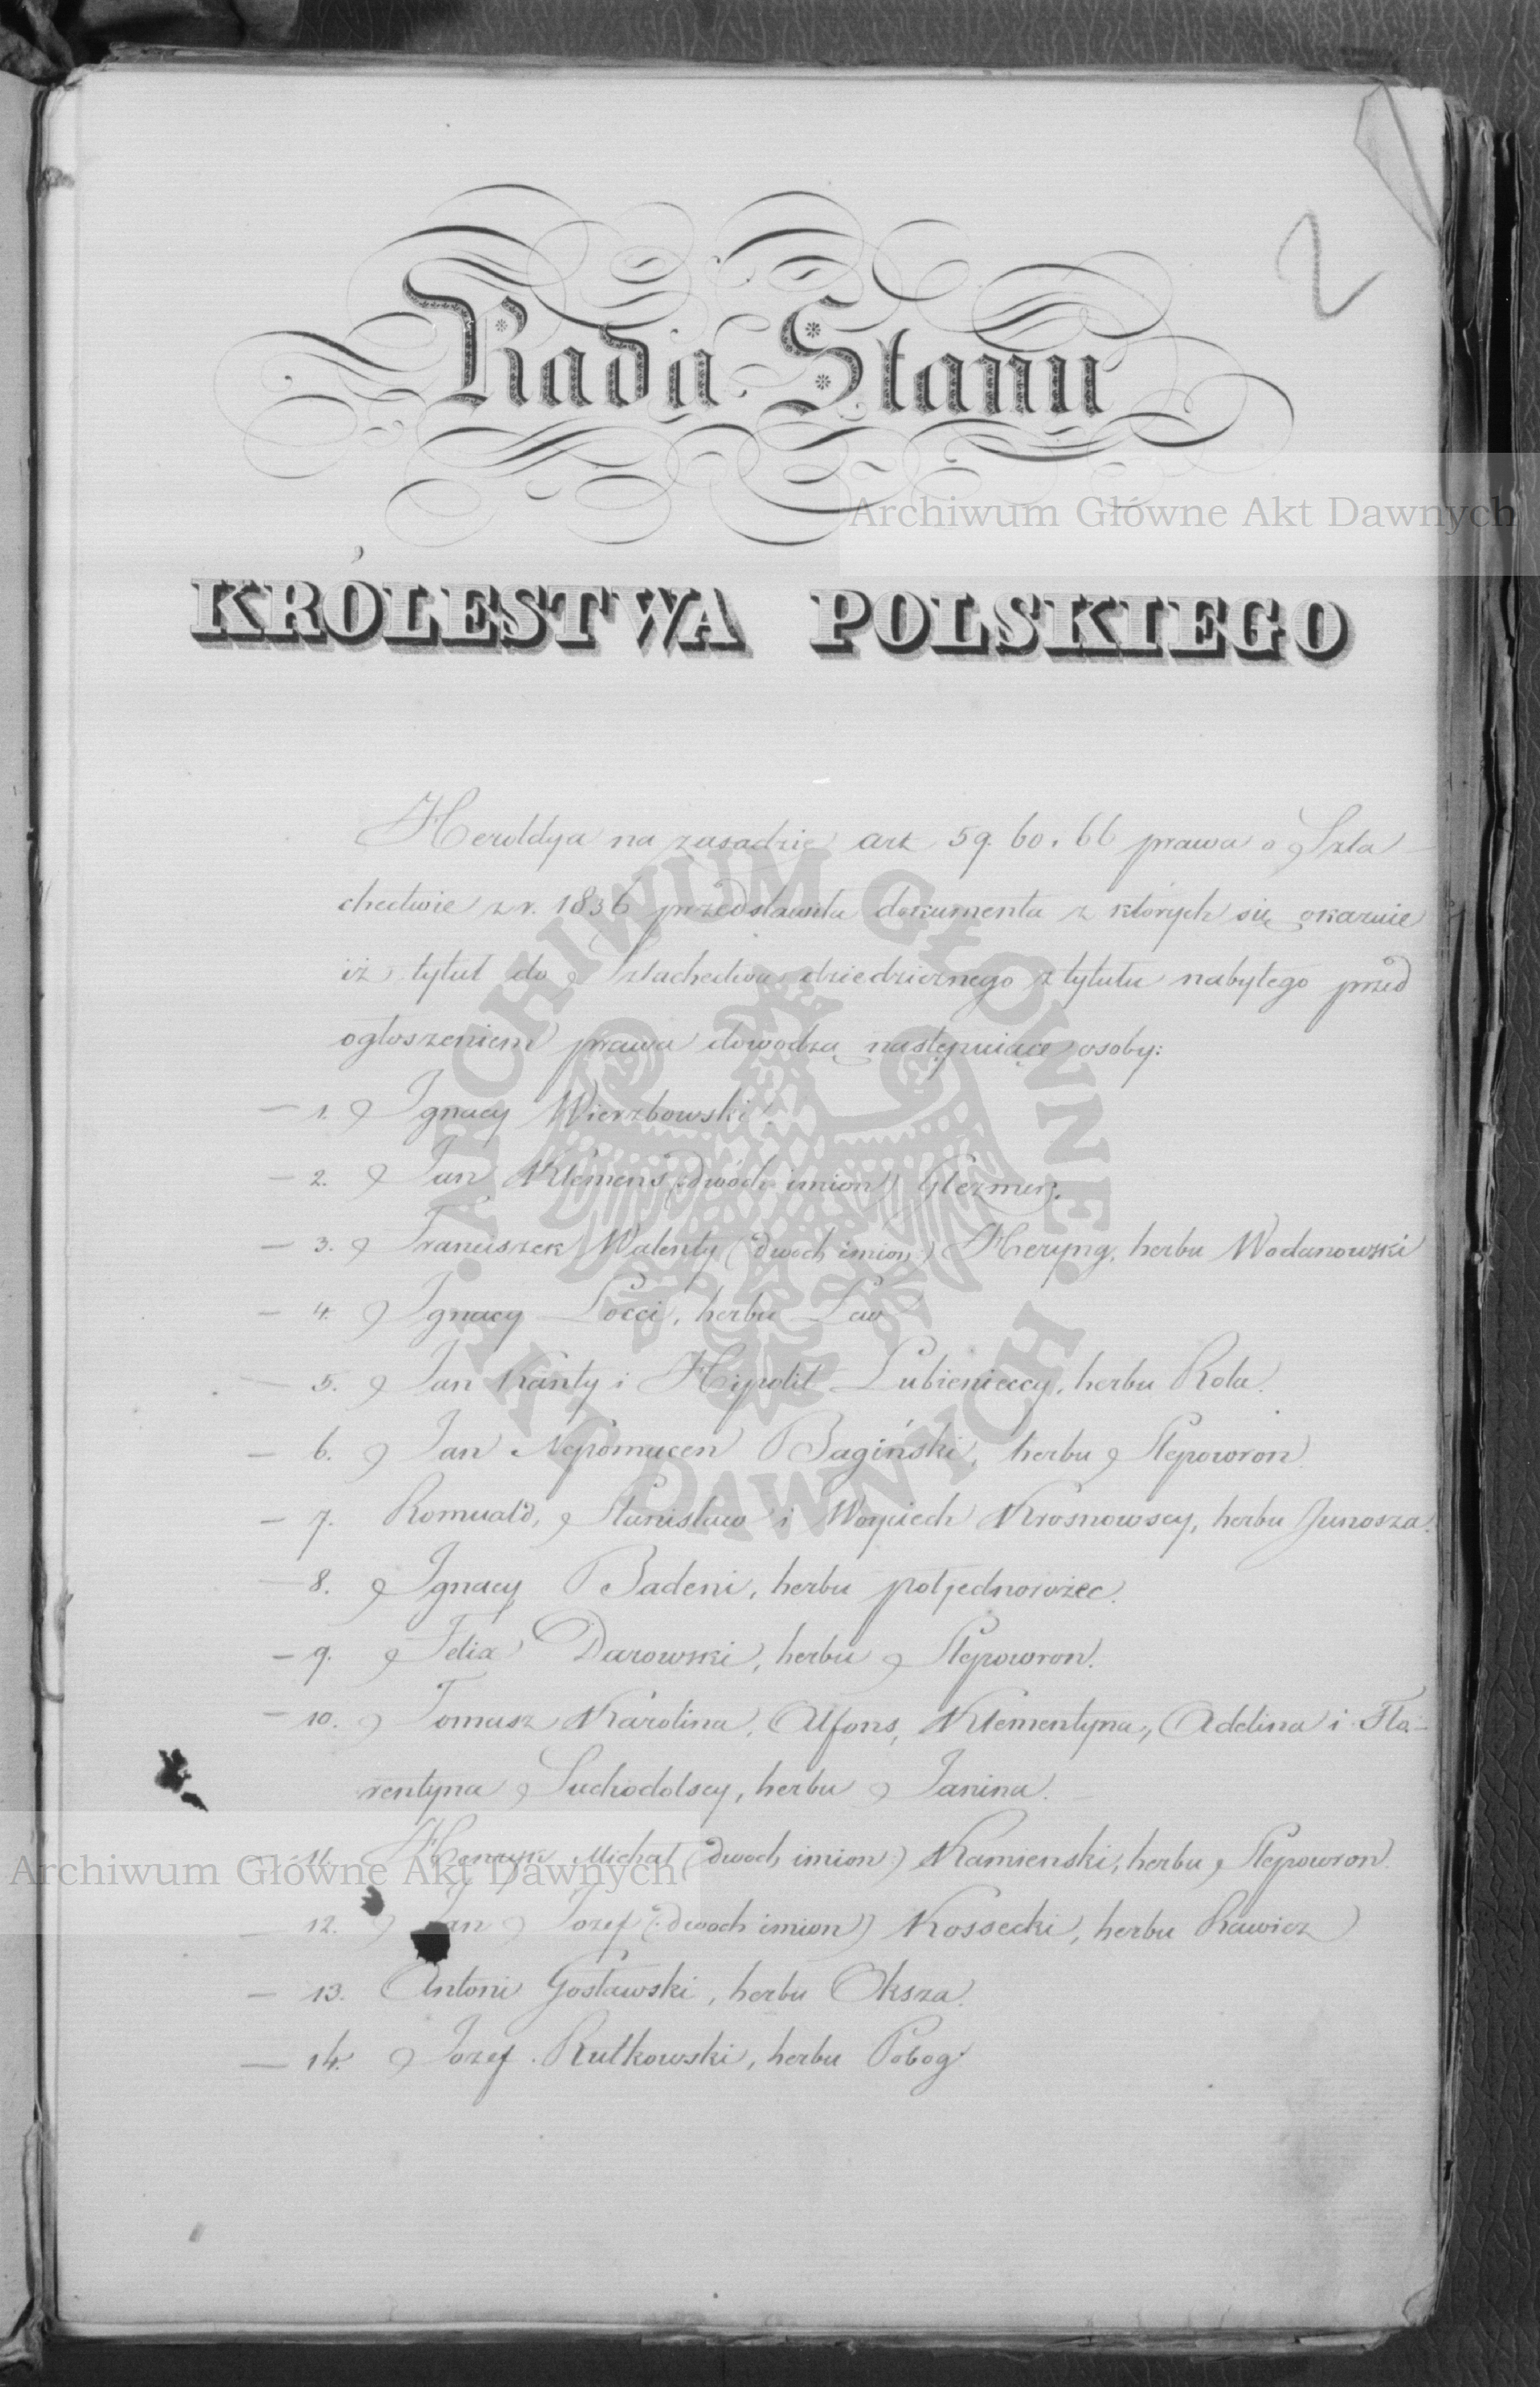 2
Rada Stanu
Archiwum Główne Akt Dawnych
KRÓLESTWA POLSKIEGO
Heroldya na zasadzie art 59. 60. 66 prawa o Szla-
chectwie z r. 1836 przedstawiła dokumenta z których się okazuie
iż tytuł do Szlachectwa dziedzicznego z tytułu nabytego przed
ogłoszeniem prawa dowodzą następuiące osoby:
— 1. Ignacy Wierzbowski.
— 2. Jan Klemens (dwóch imion)
— 3. Franciszek Walenty (dwoch imion) Heryng, herbu Wodanowski
— 4. Ignacy Locci, herbu Lew
— 5. Jan Kanty i Hipolit Lubienieccy, herbu Rola.
— 6. Jan Nepomucen Bagiński, herbu Slepowron.
— 7. Romuald, Stanisław i Woyciech Krosnowscy, herbu Junosza.
— 8. Ignacy Badeni, herbu połjednorożec.
— 9. Felix Darowski, herbu Slepowron.
— 10. Tomasz Karolina, Alfons, Klementyna, Adelina i Flo-
rentyna Suchodolscy, herbu Janina.
— 11. Henryk Michał (dwoch imion) Kamienski, herbu Slepowron.
Archiwum Główne Akt Dawnych
— 12. Jan Jozef (dwoch imion) Kossecki, herbu Rawicz
— 13. Antoni Gosławski, herbu Oksza.
— 14. Jozef Rutkowski, herbu Pobog
ARCHIWUM GŁÓWNE
AKT DAWNYCH